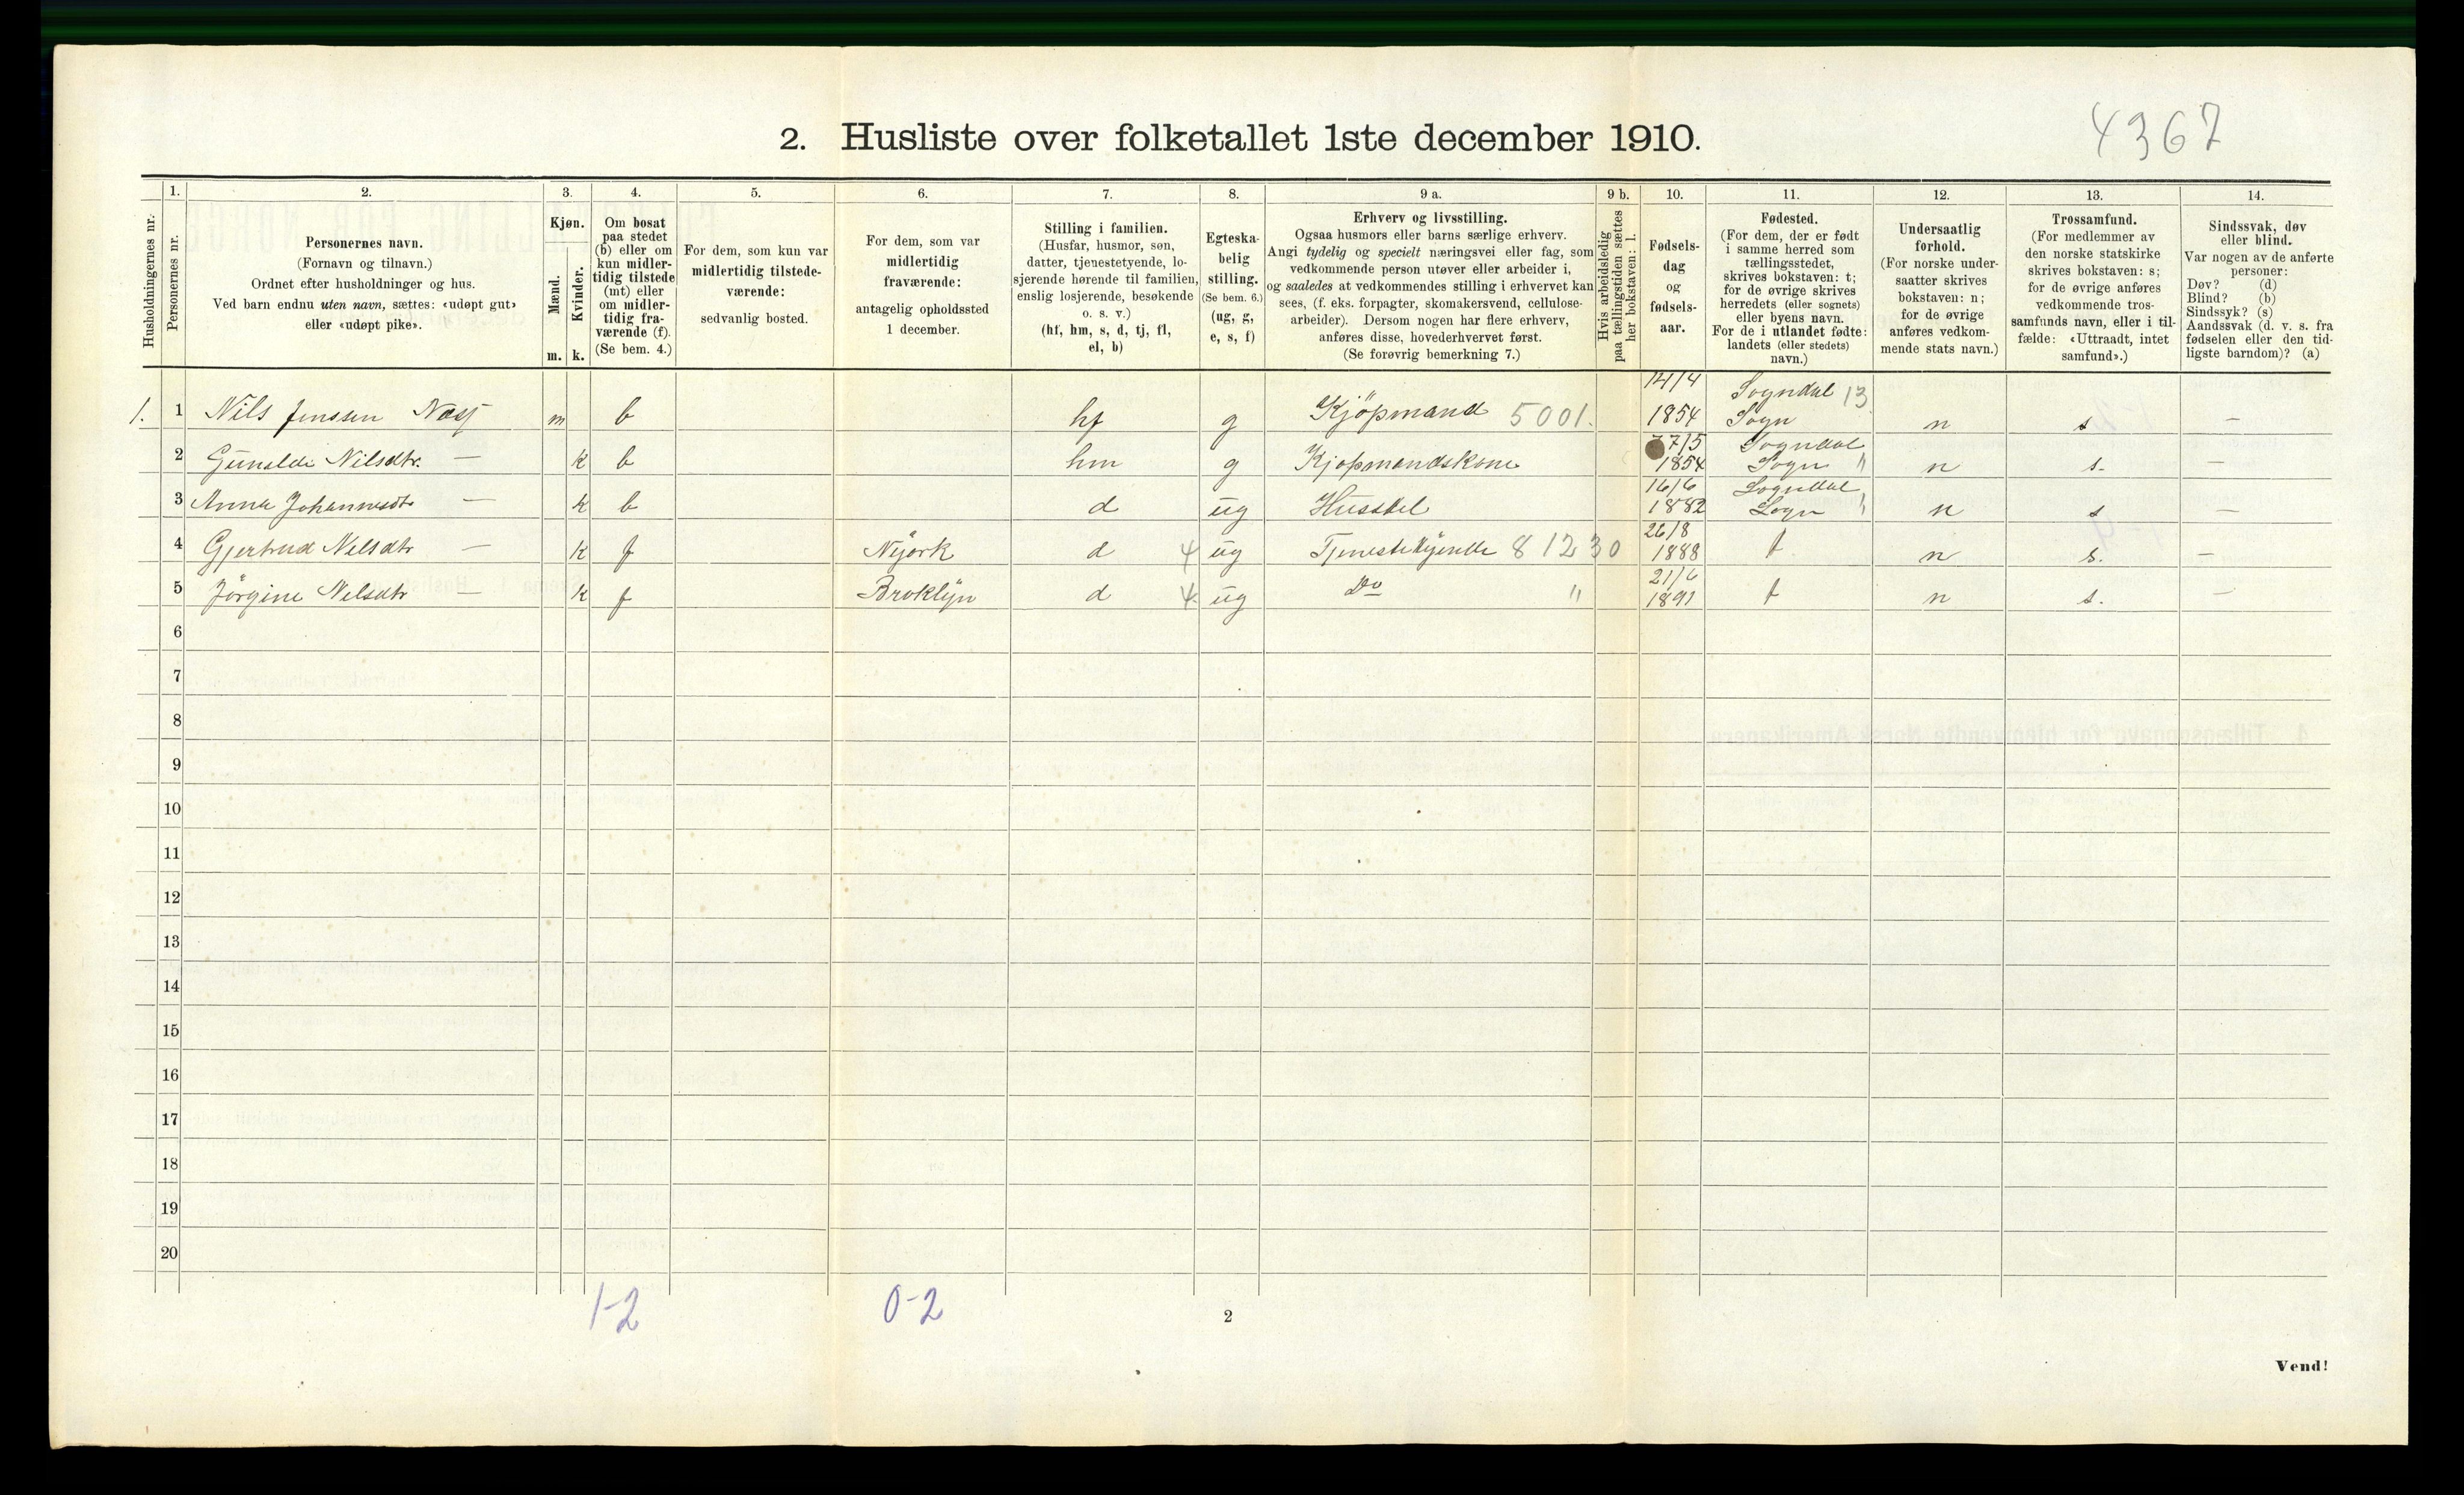 4367
2. Husliste over folketallet 1ste december 1910.
Husholdningernes nr.
1.
Personernes nr.
2.
Personernes navn.
(Fornavn og tilnavn.)
Ordnet efter husholdninger og hus.
Ved barn endnu uten navn, sættes: «udøpt gut»
eller «udøpt pike».
3.
Kjøn.
Mænd.
Kvinder.
m. k.
4.
Om bosat
paa stedet
(b) eller om
kun midler-
tidig tilstede
(mt) eller
om midler-
tidig fra-
værende (f).
(Se bem. 4.)
5.
For dem, som kun var
midlertidig tilstede-
værende:
sedvanlig bosted.
6.
For dem, som var
midlertidig
fraværende:
antagelig opholdssted
1 december.
7.
Stilling i familien.
(Husfar, husmor, søn,
datter, tjenestetyende, lo-
sjerende hørende til familien,
enslig losjerende, besøkende
o. s. v.)
(hf, hm, s, d, tj, fl,
el, b)
8.
Egteska-
belig
stilling.
(Se bem. 6.)
(ug, g,
e, s, f)
9 a.
Erhverv og livsstilling.
Ogsaa husmors eller barns særlige erhverv.
Angi tydelig og specielt næringsvei eller fag, som
vedkommende person utøver eller arbeider i,
og saaledes at vedkommendes stilling i erhvervet kan
sees, (f. eks. forpagter, skomakersvend, cellulose-
arbeider). Dersom nogen har flere erhverv,
anføres disse, hovederhvervet først.
(Se forøvrig bemerkning 7.)
9 b.
Hvis arbeidsledig
paa tællingstiden sættes
her bokstaven: l.
10.
Fødsels-
dag
og
fødsels-
aar.
11.
Fødested.
(For dem, der er født
i samme herred som
tællingsstedet,
skrives bokstaven: t;
for de øvrige skrives
herredets (eller sognets)
eller byens navn.
For de i utlandet fødte:
landets (eller stedets)
navn.)
12.
Undersaatlig
forhold.
(For norske under-
saatter skrives
bokstaven: n;
for de øvrige
anføres vedkom-
mende stats navn.)
13.
Trossamfund.
(For medlemmer av
den norske statskirke
skrives bokstaven: s;
for de øvrige anføres
vedkommende tros-
samfunds navn, eller i til-
fælde: «Uttraadt, intet
samfund».)
14.
Sindssvak, døv
eller blind.
Var nogen av de anførte
personer:
Døv? (d)
Blind? (b)
Sindssyk? (s)
Aandssvak (d. v. s. fra
fødselen eller den tid-
ligste barndom)? (a)
14/4 Sogndal 13
1. 1 Nils Jenssen m b hf g Kjöpmand 5001. 1854 Sogn n s —
7/5 Sogndal
2 Nilsdtr. — k b hm g Kjøpmandskone 1854 Sogn " n s. —
16/6 Sogndal
3 Anna Johannesdtr — k b d ug Husstel 1882 Sogn " n s —
26/8
4 Gjertrud Nilsdtr — k f Nyørk d 4 ug Tjenestetyende 81230 1888 t n s. —
21/6
5 Jörgine Nilsdtr — k f Broklyn d 4 ug Do " 1891 t n s. —
6
7
8
9
10
11
12
13
14
15
16
17
18
19
20
1-2 0-2
2
Vend!